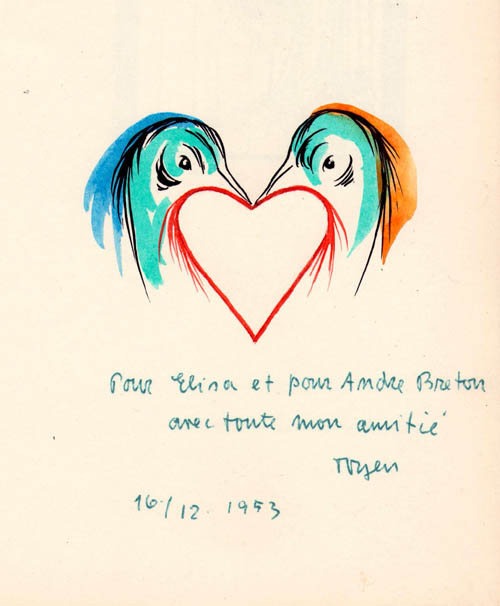 Pour Elisa et pour Andre Breton
avec toute mon amitié
Toyen
16/12. 1953